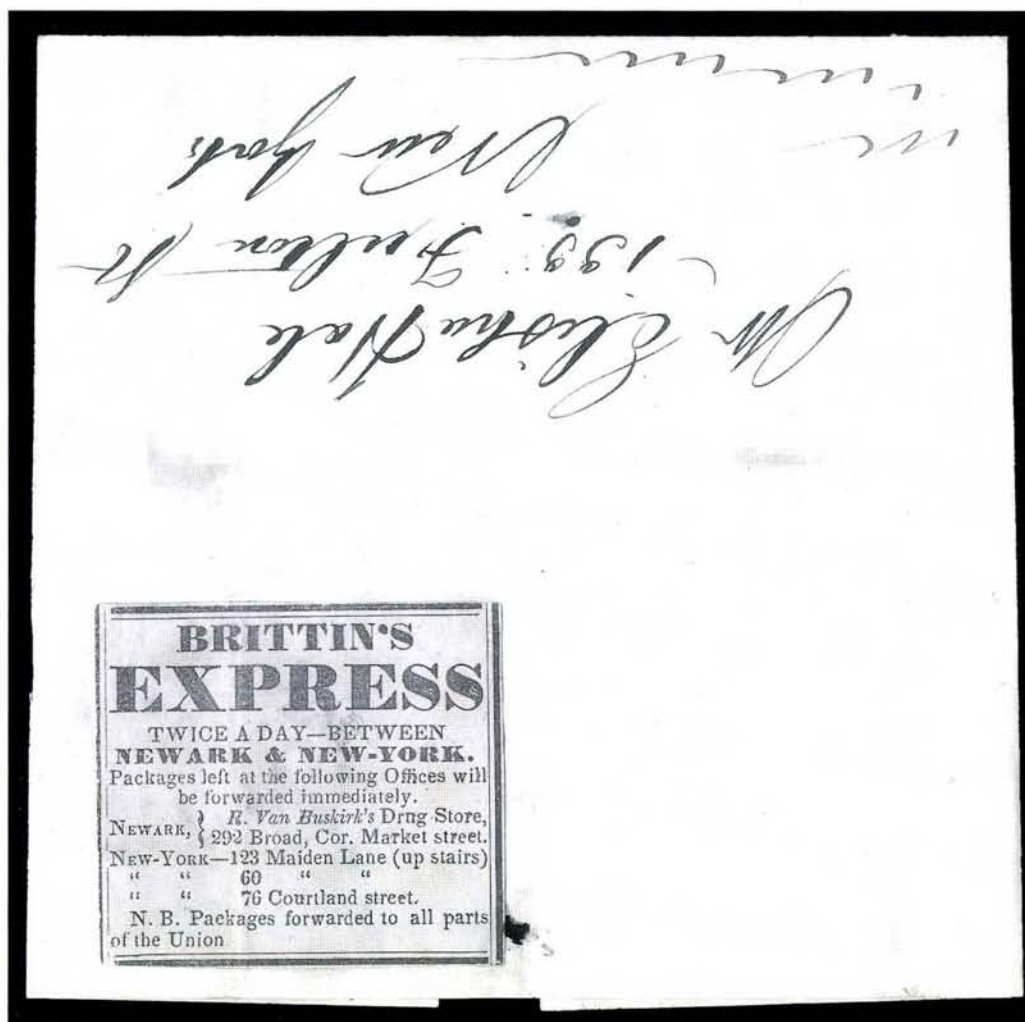 Mr Elisha Hale
Fulton St
New York
BRITTIN'S
EXPRESS
TWICE A DAY—BETWEEN
NEWARK & NEW-YORK.
Packages left at the following Offices will
be forwarded immediately.
NEWARK, { R. Van Buskirk's Drug Store,
292 Broad, Cor. Market street.
NEW-YORK—123 Maiden Lane (up stairs)
“ “ 60 “ “
“ “ 76 Courtland street.
N. B. Packages forwarded to all parts
of the Union